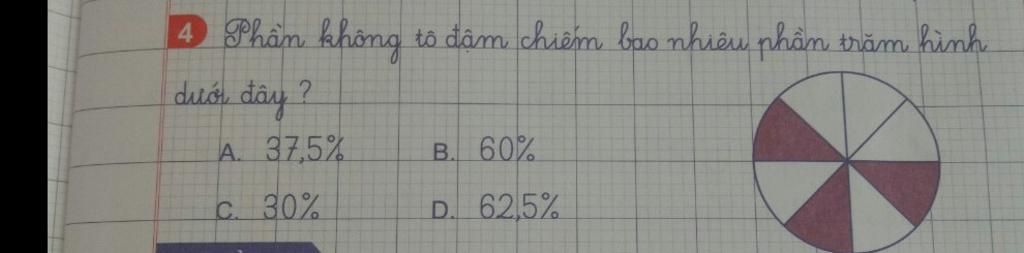 4 Phần không tô đậm chiếm bao nhiêu phần trăm hình
dưới đây ?
A. 37,5% B. 60%
C. 30% D. 62,5%